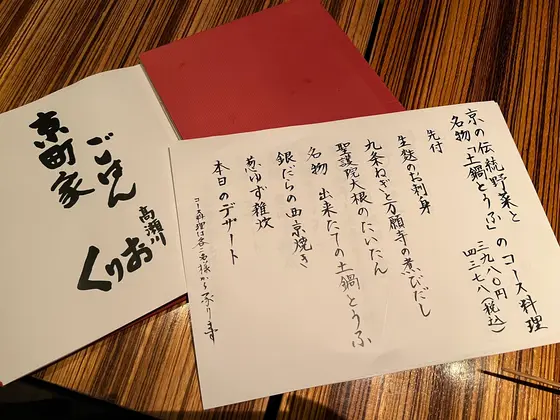 京町家
ごはん
高瀬川
くりお
京の伝統野菜と
名物「土鍋とうふ」のコース料理
三九八〇円
四三七八(税込)
先付
生麩のお刺身
九条ねぎと万願寺の煮びだし
聖護院大根のたいたん
名物 出来たての土鍋とうふ
銀だらの西京焼き
葱ゆず雑炊
本日のデザート
コース料理は名様から承ります